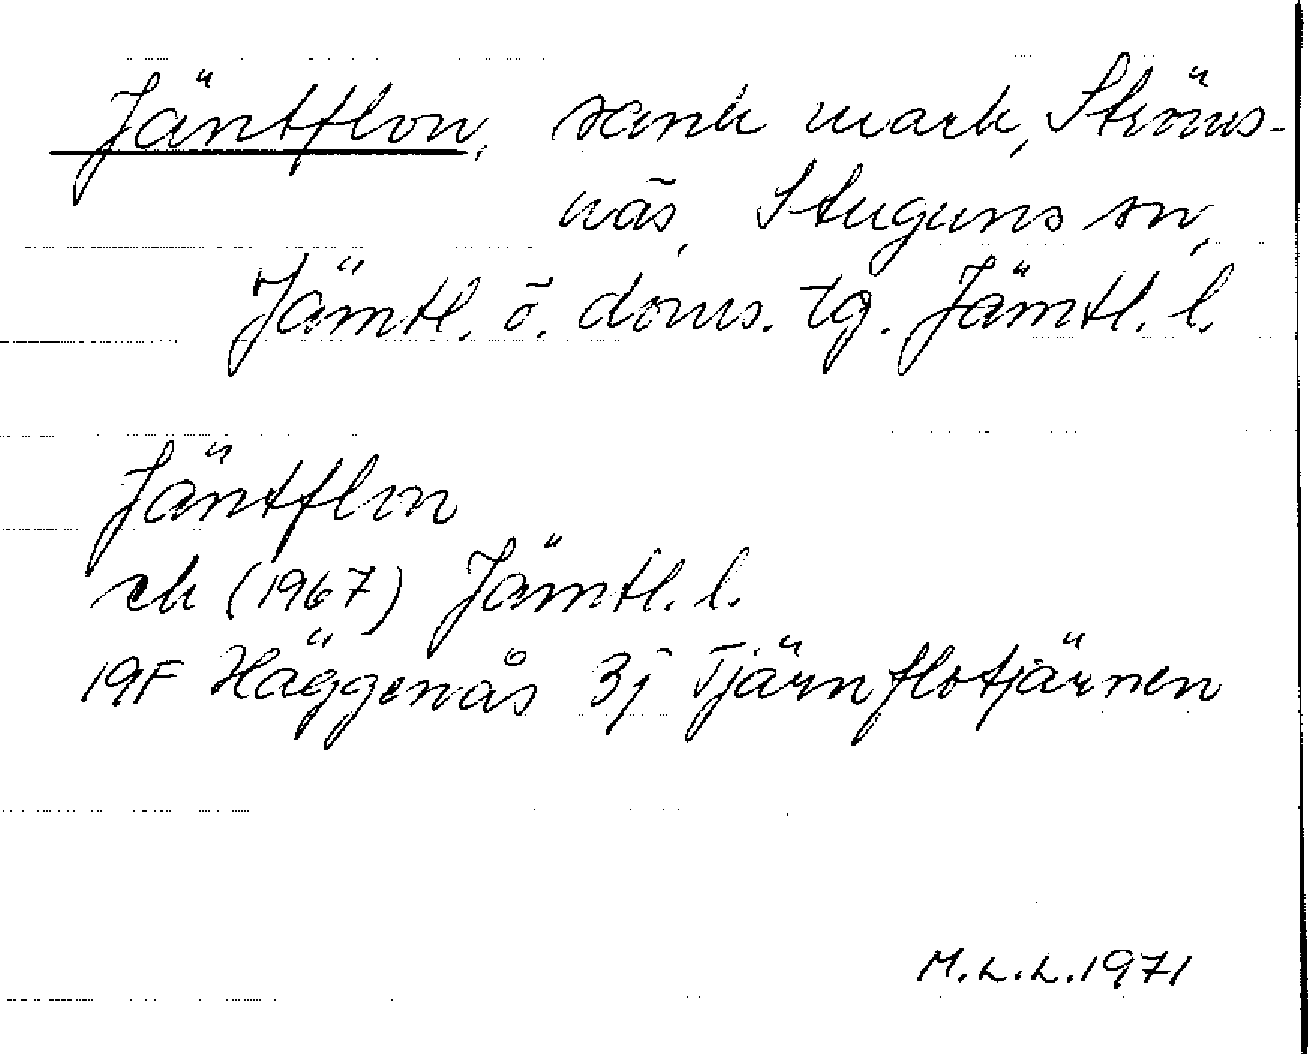 Jäntflon, sank mark, Ströms-
näs, Stuguns sn,
Jämtl. ö. doms. tg. Jämtl. l.
Jäntflon
ek (1967) Jämtl. l.
19F Häggenås 3j Tjärnflotjärnen
M.L.L. 1971